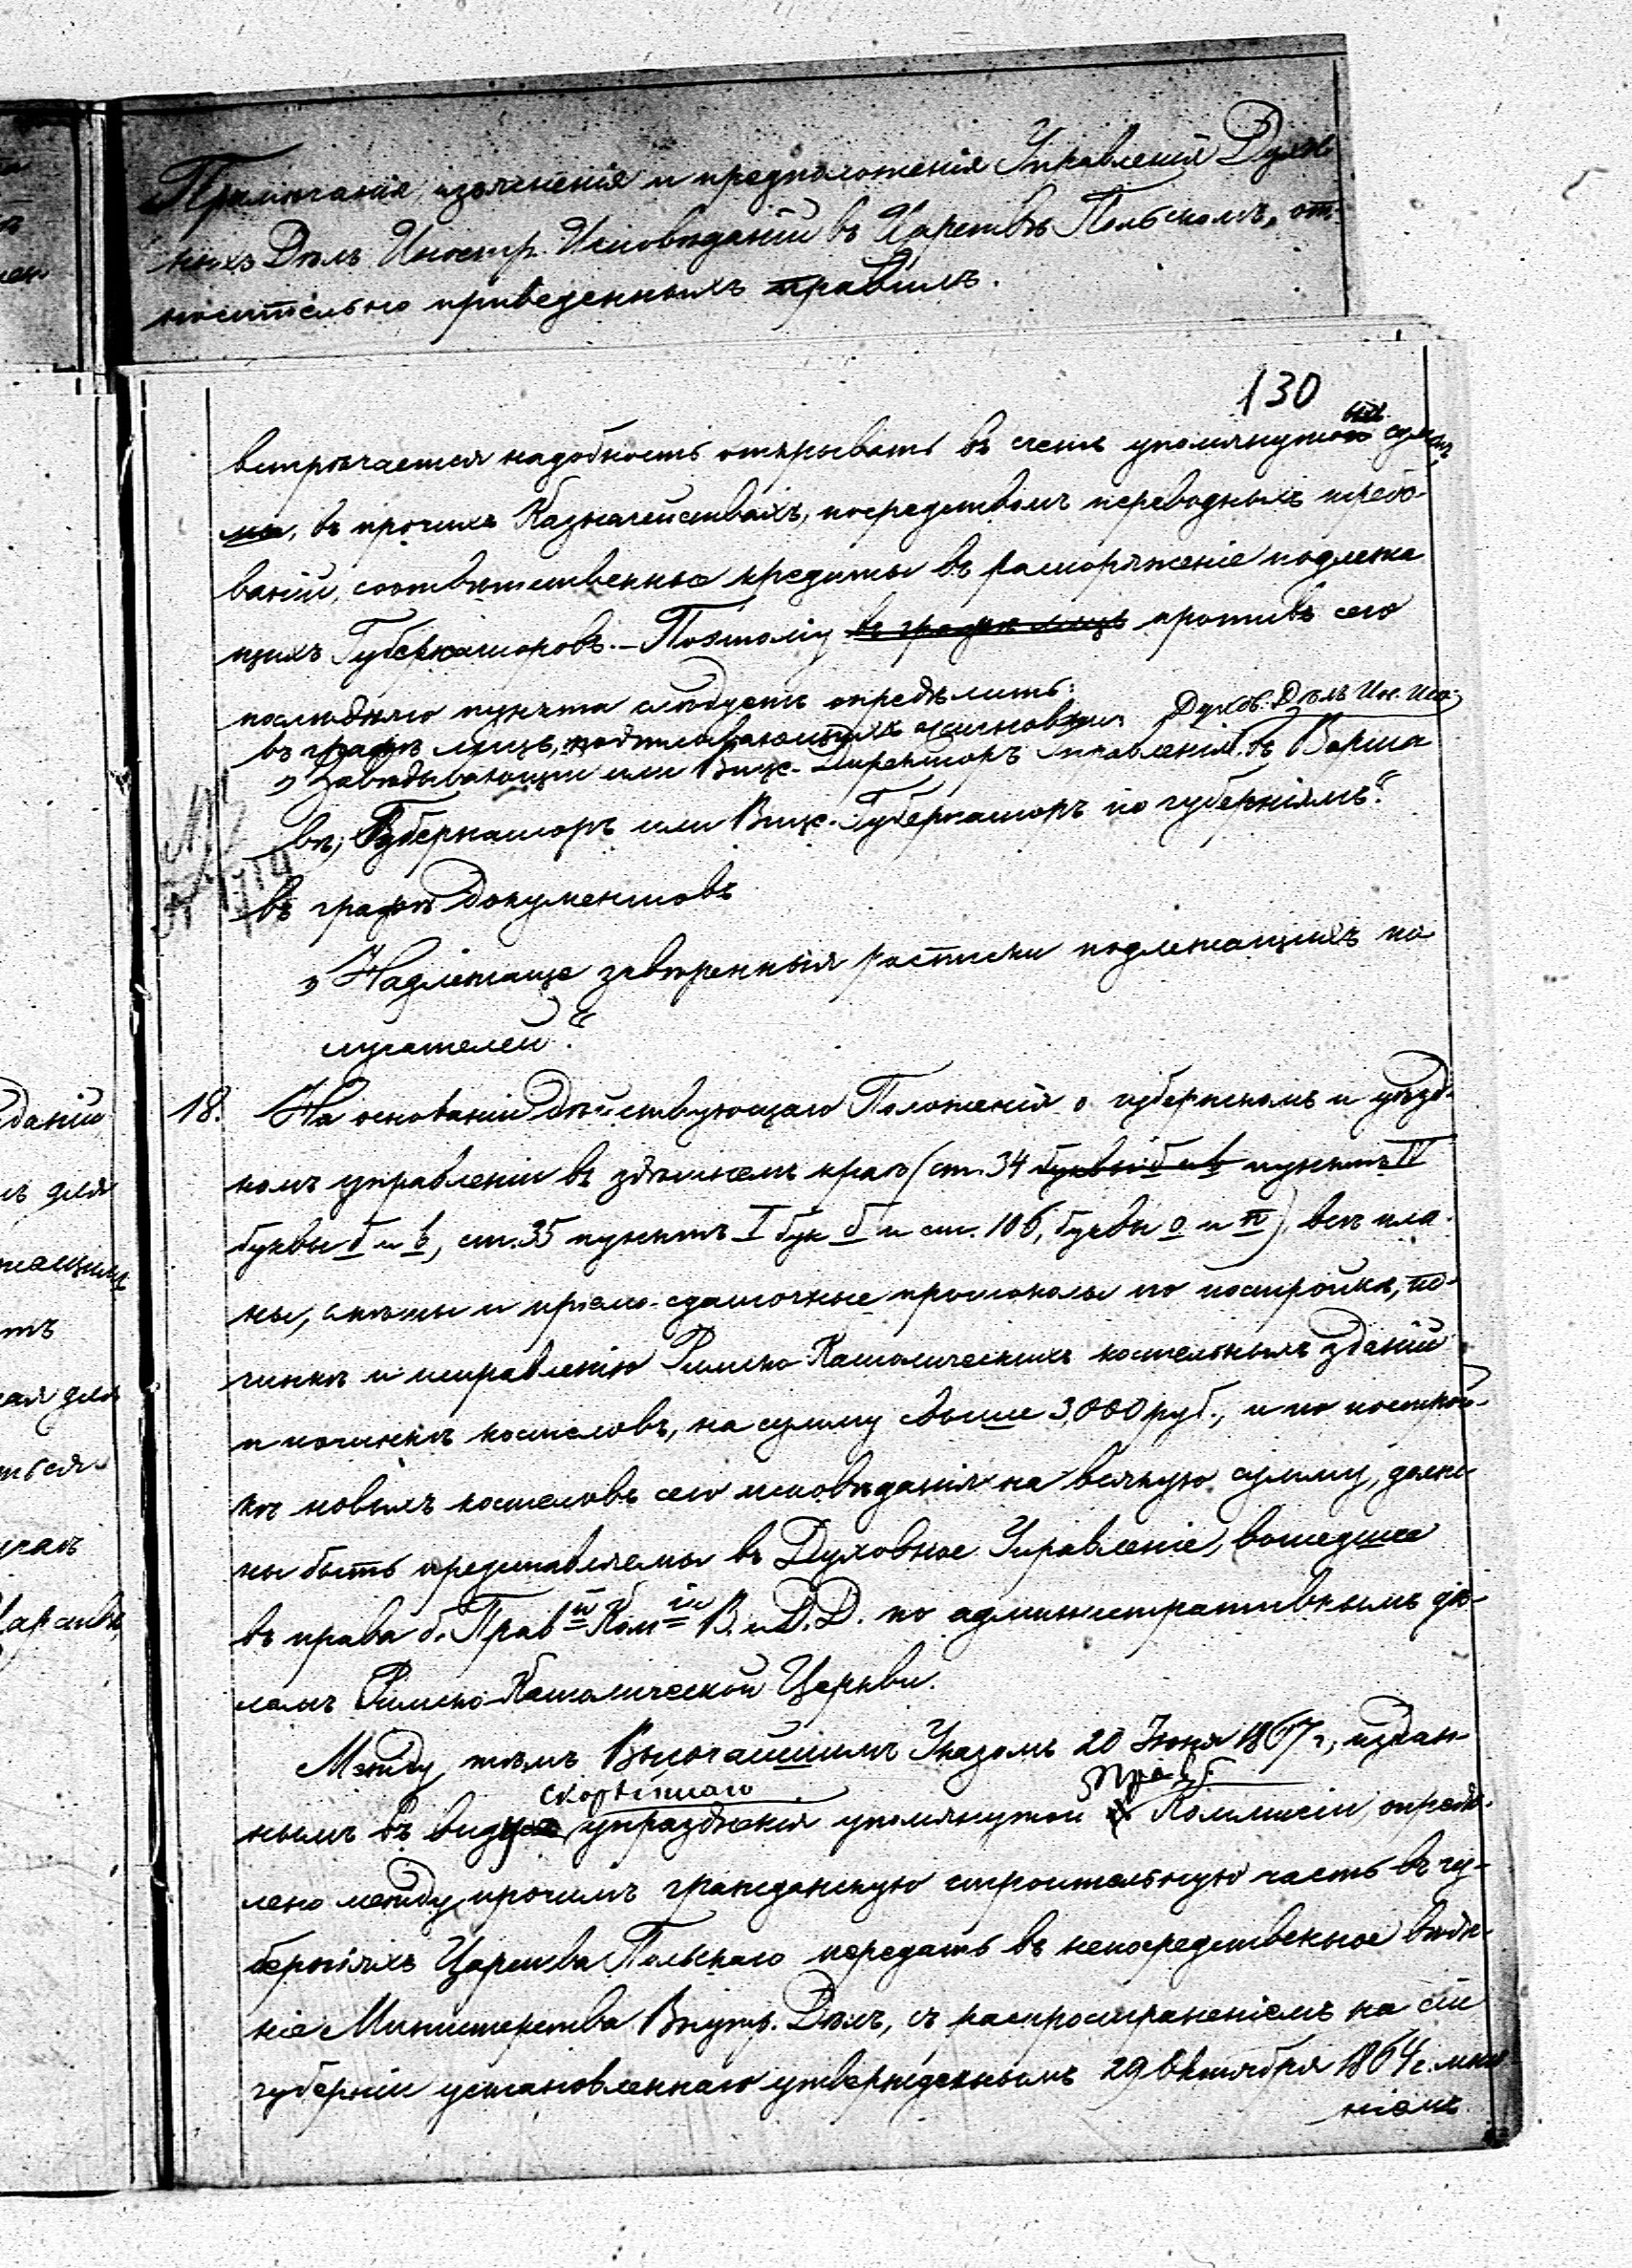 Примѣчанія, изъясненія и предположенія Управленія Духов-
ныхъ Дѣлъ Иностр. Исповѣданій въ Царствѣ Польскомъ, от-
носительно приведенныхъ правилъ.
130
встрѣчается надобность открывать въ счетъ упомянутой сум-
мы, въ прочихъ Казначействахъ, посредствомъ переводныхъ требо-
ваній, соотвѣтственные кредиты въ распоряженіе подлежа
щихъ Губернаторовъ. – Поэтому въ графѣ лицъ противъ сего
послѣдняго пункта слѣдуетъ опредѣлить:
въ графѣ лицъ, Духов. Дѣлъ Ин. Исп.
„Завѣдывающій или Вице-Директоръ Управленія въ Варша
вѣ; Губернаторъ или Вице-Губернаторъ по губерніямъ“.
въ графѣ документовъ
„Надлежаще завѣренныя росписки подлежащихъ по
лучателей“.
18. На основаніи дѣйствующаго Положенія о губернскомъ и уѣзд-
номъ управленіи въ здѣшнемъ краѣ (ст. 34 буквы б и в пунктъ IV
буквы б и в, ст. 35 пунктъ I бук б и ст. 106, буквы о и п) всѣ пла-
ны, смѣты и пріемо-сдаточные протоколы по постройкѣ, по-
чинкѣ и исправленію Римско-Католическихъ костельныхъ зданій
и починкѣ костеловъ, на сумму свыше 3,000 руб., и по построй-
кѣ новыхъ костеловъ сего исповѣданія на всякую сумму, долж-
ны быть представляемы въ Духовное Управленіе, вошедшее
въ права б. Прав й Ком іи В. и Д. Д. по административнымъ дѣ-
ламъ Римско-Католической Церкви.
Между тѣмъ Высочайшимъ Указомъ 20 Іюня 1867 г., издан-
скорѣйшаго Прав.
нымъ въ виду упраздненія упомянутой Коммисіи, опредѣ-
лено между прочимъ гражданскую строительную часть въ гу-
берніяхъ Царства Польскаго передать въ непосредственное вѣдѣ-
ніе Министерства Внутр. Дѣлъ, съ распространеніемъ на сіи
губерніи установленнаго утвержденнымъ 29 Октября 1864 г. мнѣ
ніемъ